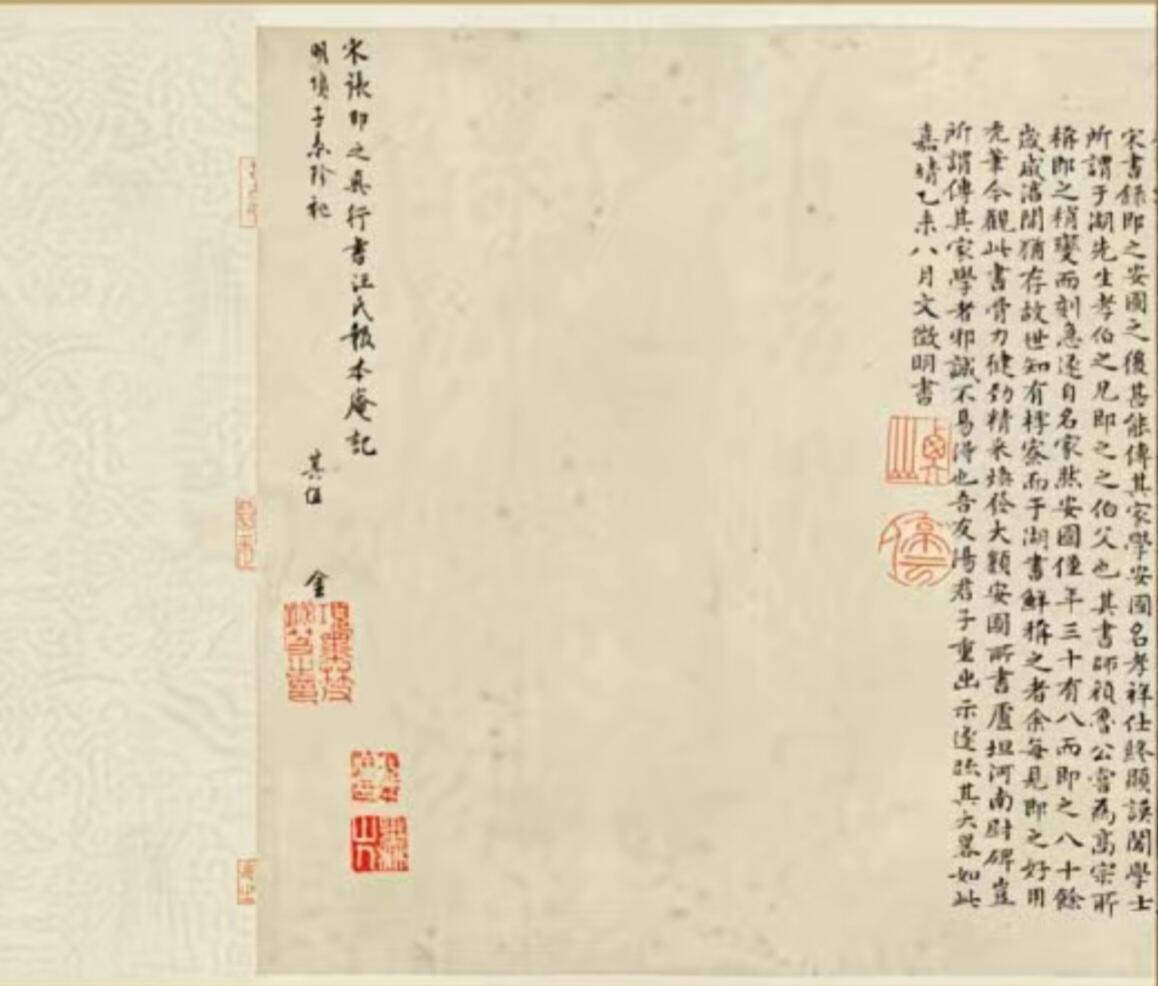 宋書錄即之安國之後甚能傳其家學安國名孝祥仕終顯謨閣學士
所謂于湖先生孝伯之兄即之之伯父也其書師顏魯公嘗為高宗所
稱即之稍變而刻急遂自名家然安國僅年三十有八而即之八十餘
歲咸淳間猶存故世知有樗寮而于湖書鮮稱之者余每見即之好用
禿筆今觀此書骨力健勁精采煥發大類安國所書盧坦河南尉碑豈
所謂傳其家學者邪誠不易得也吾友湯君子重出示遂疏其大畧如此
嘉靖乙未八月文徵明書
宋張即之真行書汪氏報本庵記
明項子京珍祕
其值 金